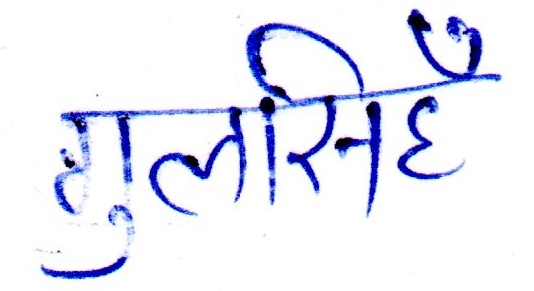 गुलासिहँ